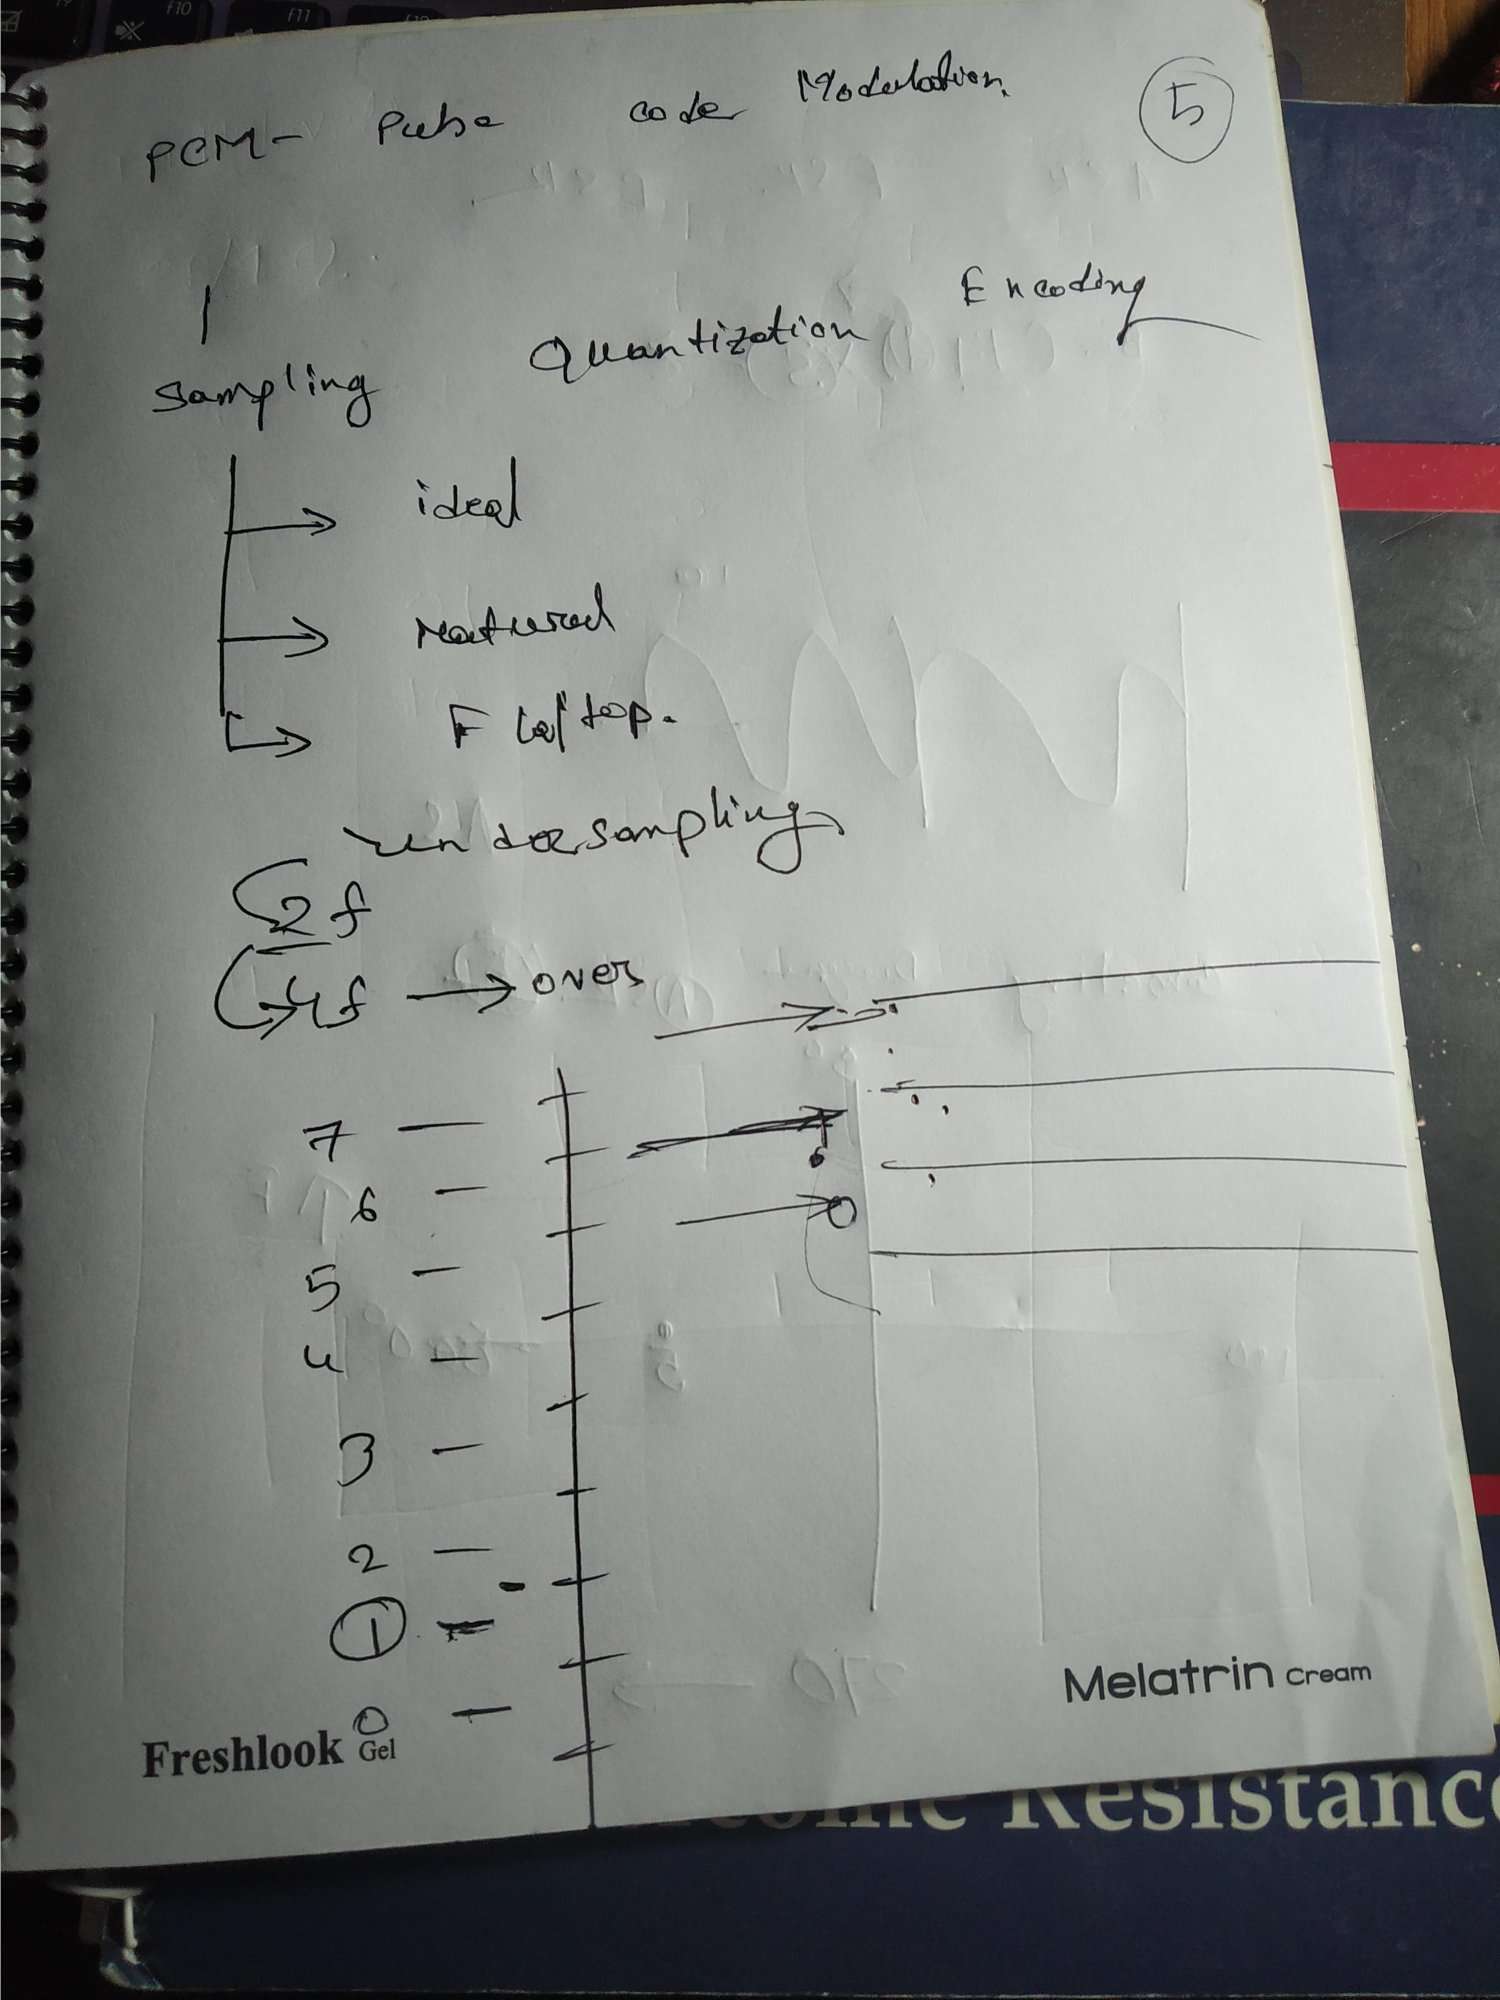 f10
f11
PCM- Pulse code Modulation.
5
Sampling Quantization Encoding
ideal
natural
Flat top.
undersampling
2f
4f → over
7 —
6 —
5 —
4 —
3 —
2 —
1 —
0 —
0
Freshlook Gel
Melatrin Cream
Resistance